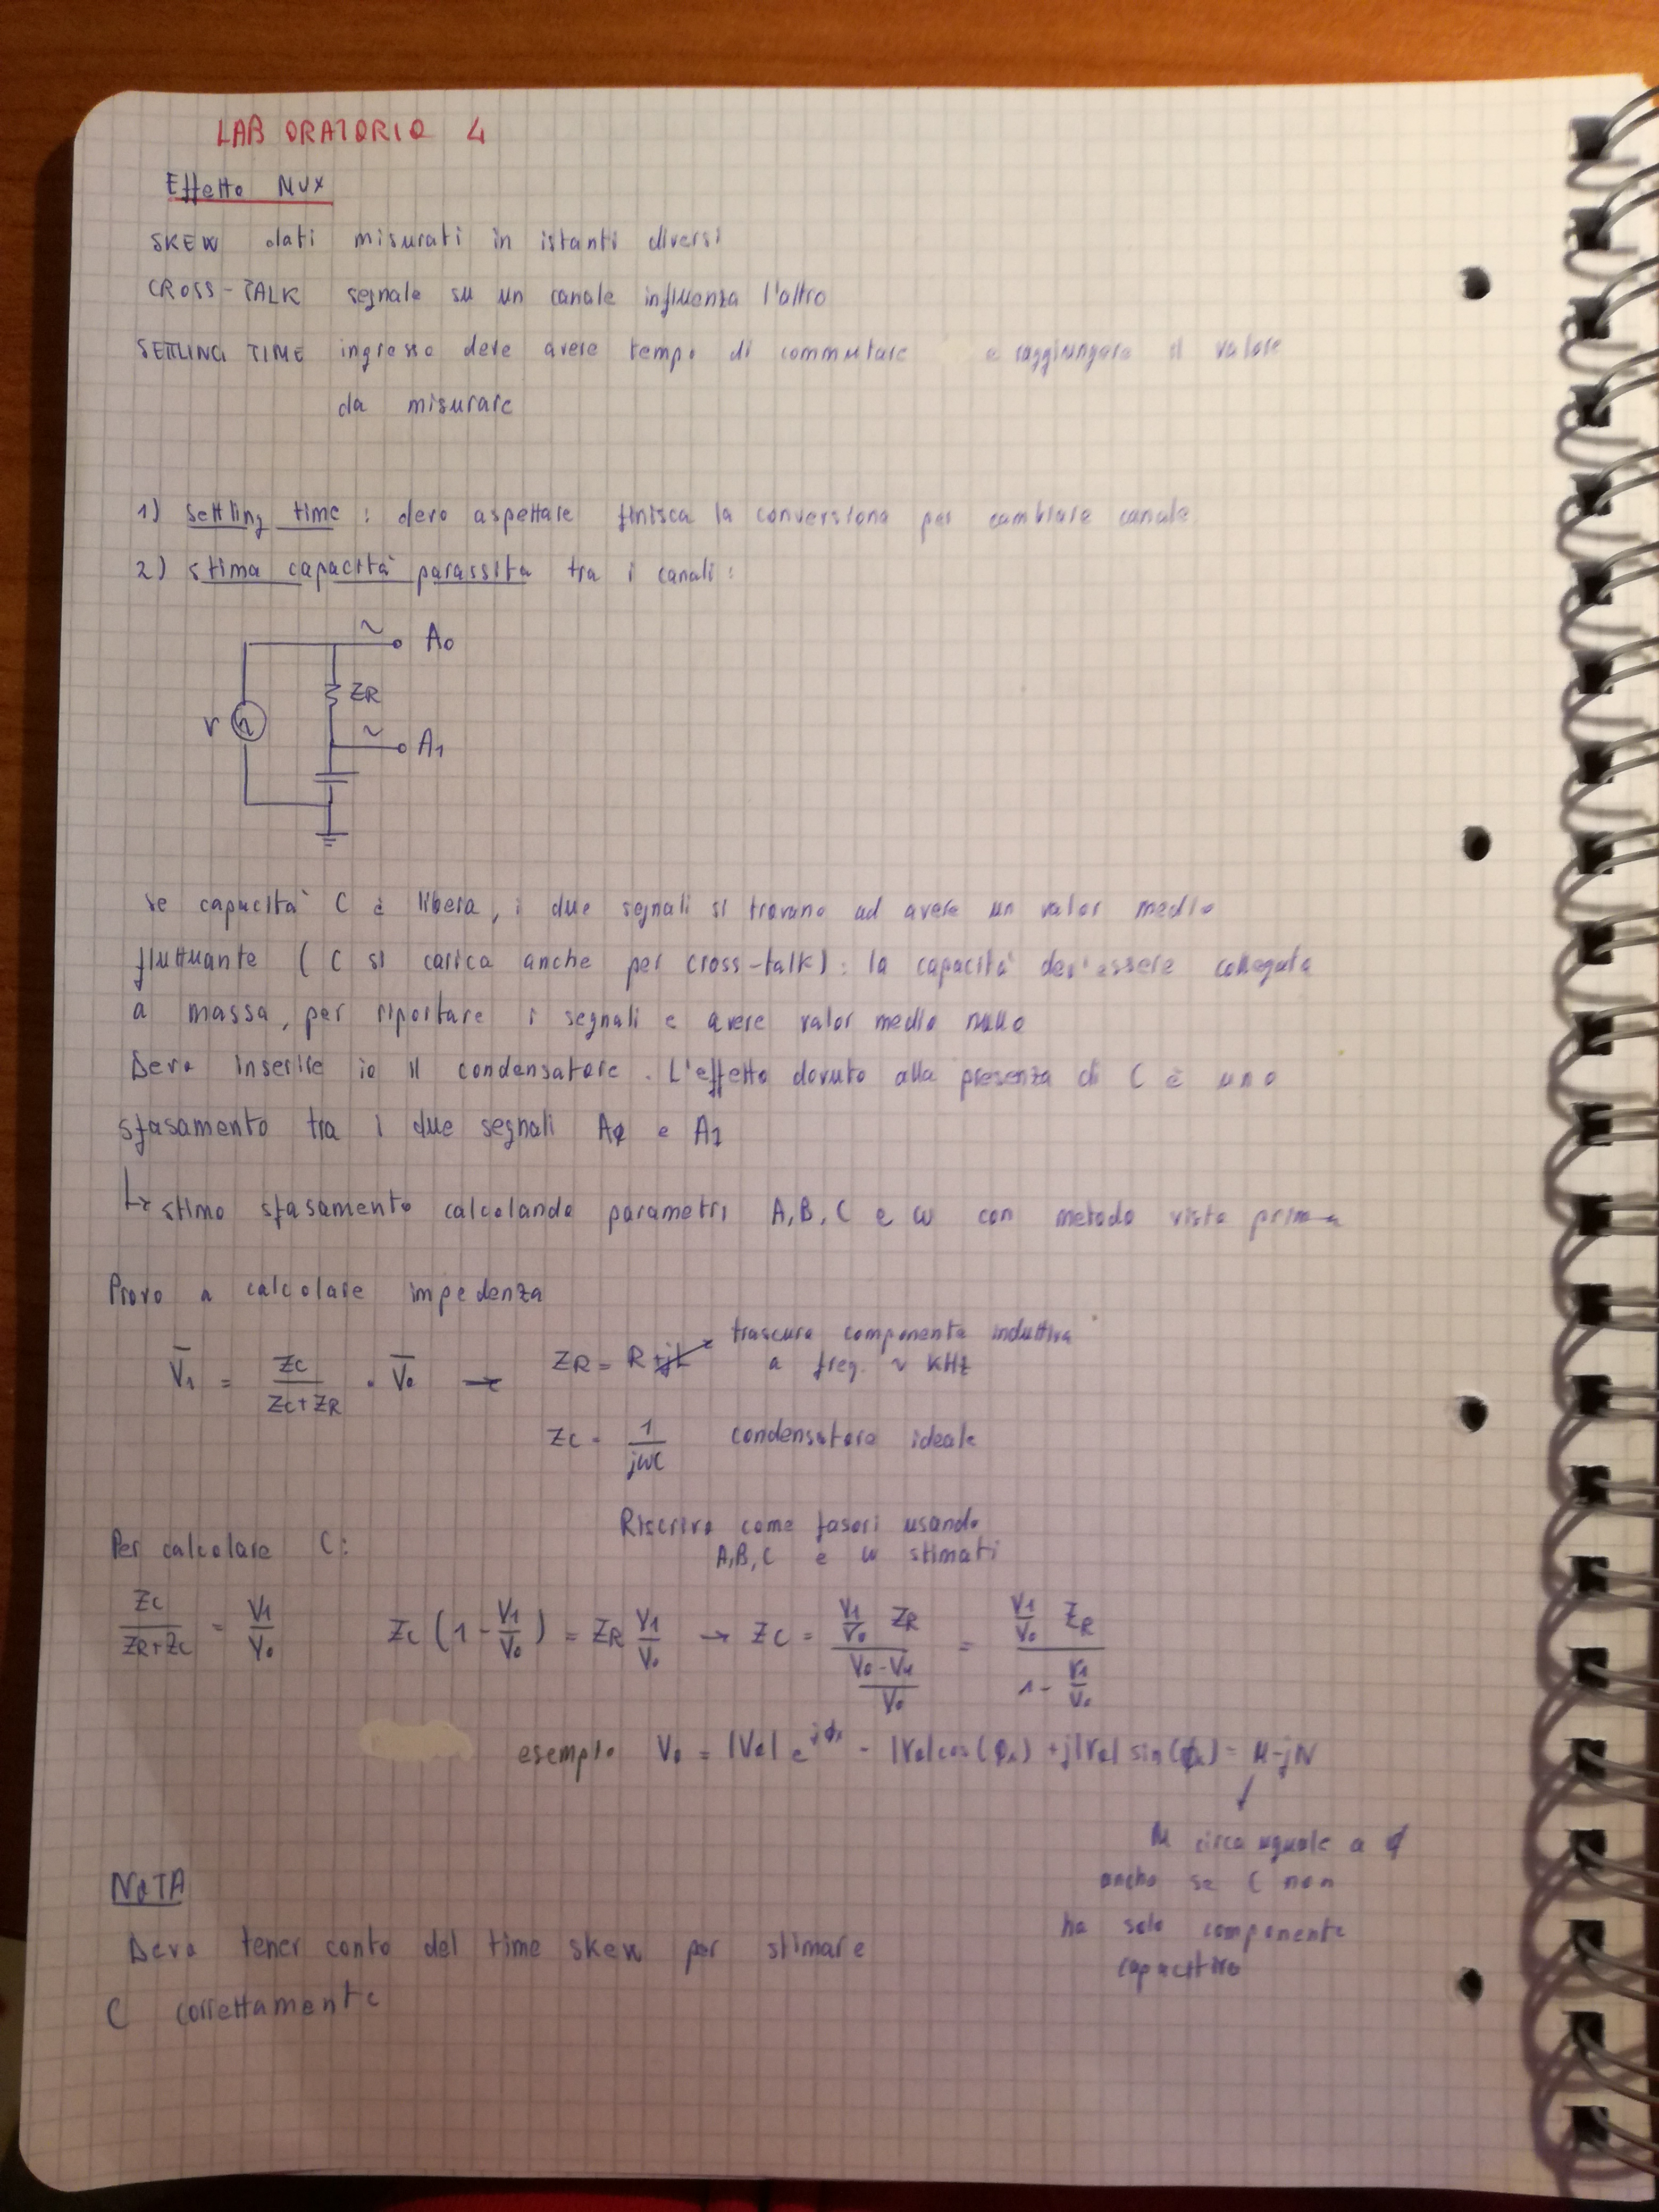 LABORATORIO 4
Effetto MUX
SKEW dati misurati in istanti diversi
CROSS-TALK segnale su un canale influenza l'altro
SETTLING TIME ingresso deve avere tempo di commutare e raggiungere il valore
da misurare
1) settling time : devo aspettare finisca la conversione per cambiare canale
2) stima capacità parassita tra i canali :
~ A0
ZR
v
~ A1
se capacità C è libera, i due segnali si trovano ad avere un valor medio
fluttuante ( C si carica anche per cross-talk) : la capacità dev'essere collegata
a massa, per riportare i segnali e avere valor medio nullo
Devo inserire io il condensatore . L'effetto dovuto alla presenza di C è uno
sfasamento tra i due segnali A0 e A1
↳ stimo sfasamento calcolando parametri A, B, C e ω con metodo visto prima
Provo a calcolare impedenza
V̄1 = ZC / (ZC + ZR) · V̄0 → ZR = R + jL trascuro componente induttiva
a freq. ~ kHz
ZC = 1 / jωC condensatore ideale
Riscrivo come fasori usando
A, B, C e ω stimati
Per calcolare C :
ZC / (ZR + ZC) = V1 / V0 ZC ( 1 - V1/V0 ) = ZR V1/V0 → ZC = (V1/V0 ZR) / ((V0 - V1) / V0) = (V1/V0 ZR) / (1 - V1/V0)
esempio V0 = |V0| e^jϕ0 = |V0| cos(ϕ0) + j|V0| sin(ϕ0) = M - jN
M circa uguale a 0
anche se C non
ha solo componente
capacitiva
NOTA
Devo tener conto del time skew per stimare
C correttamente